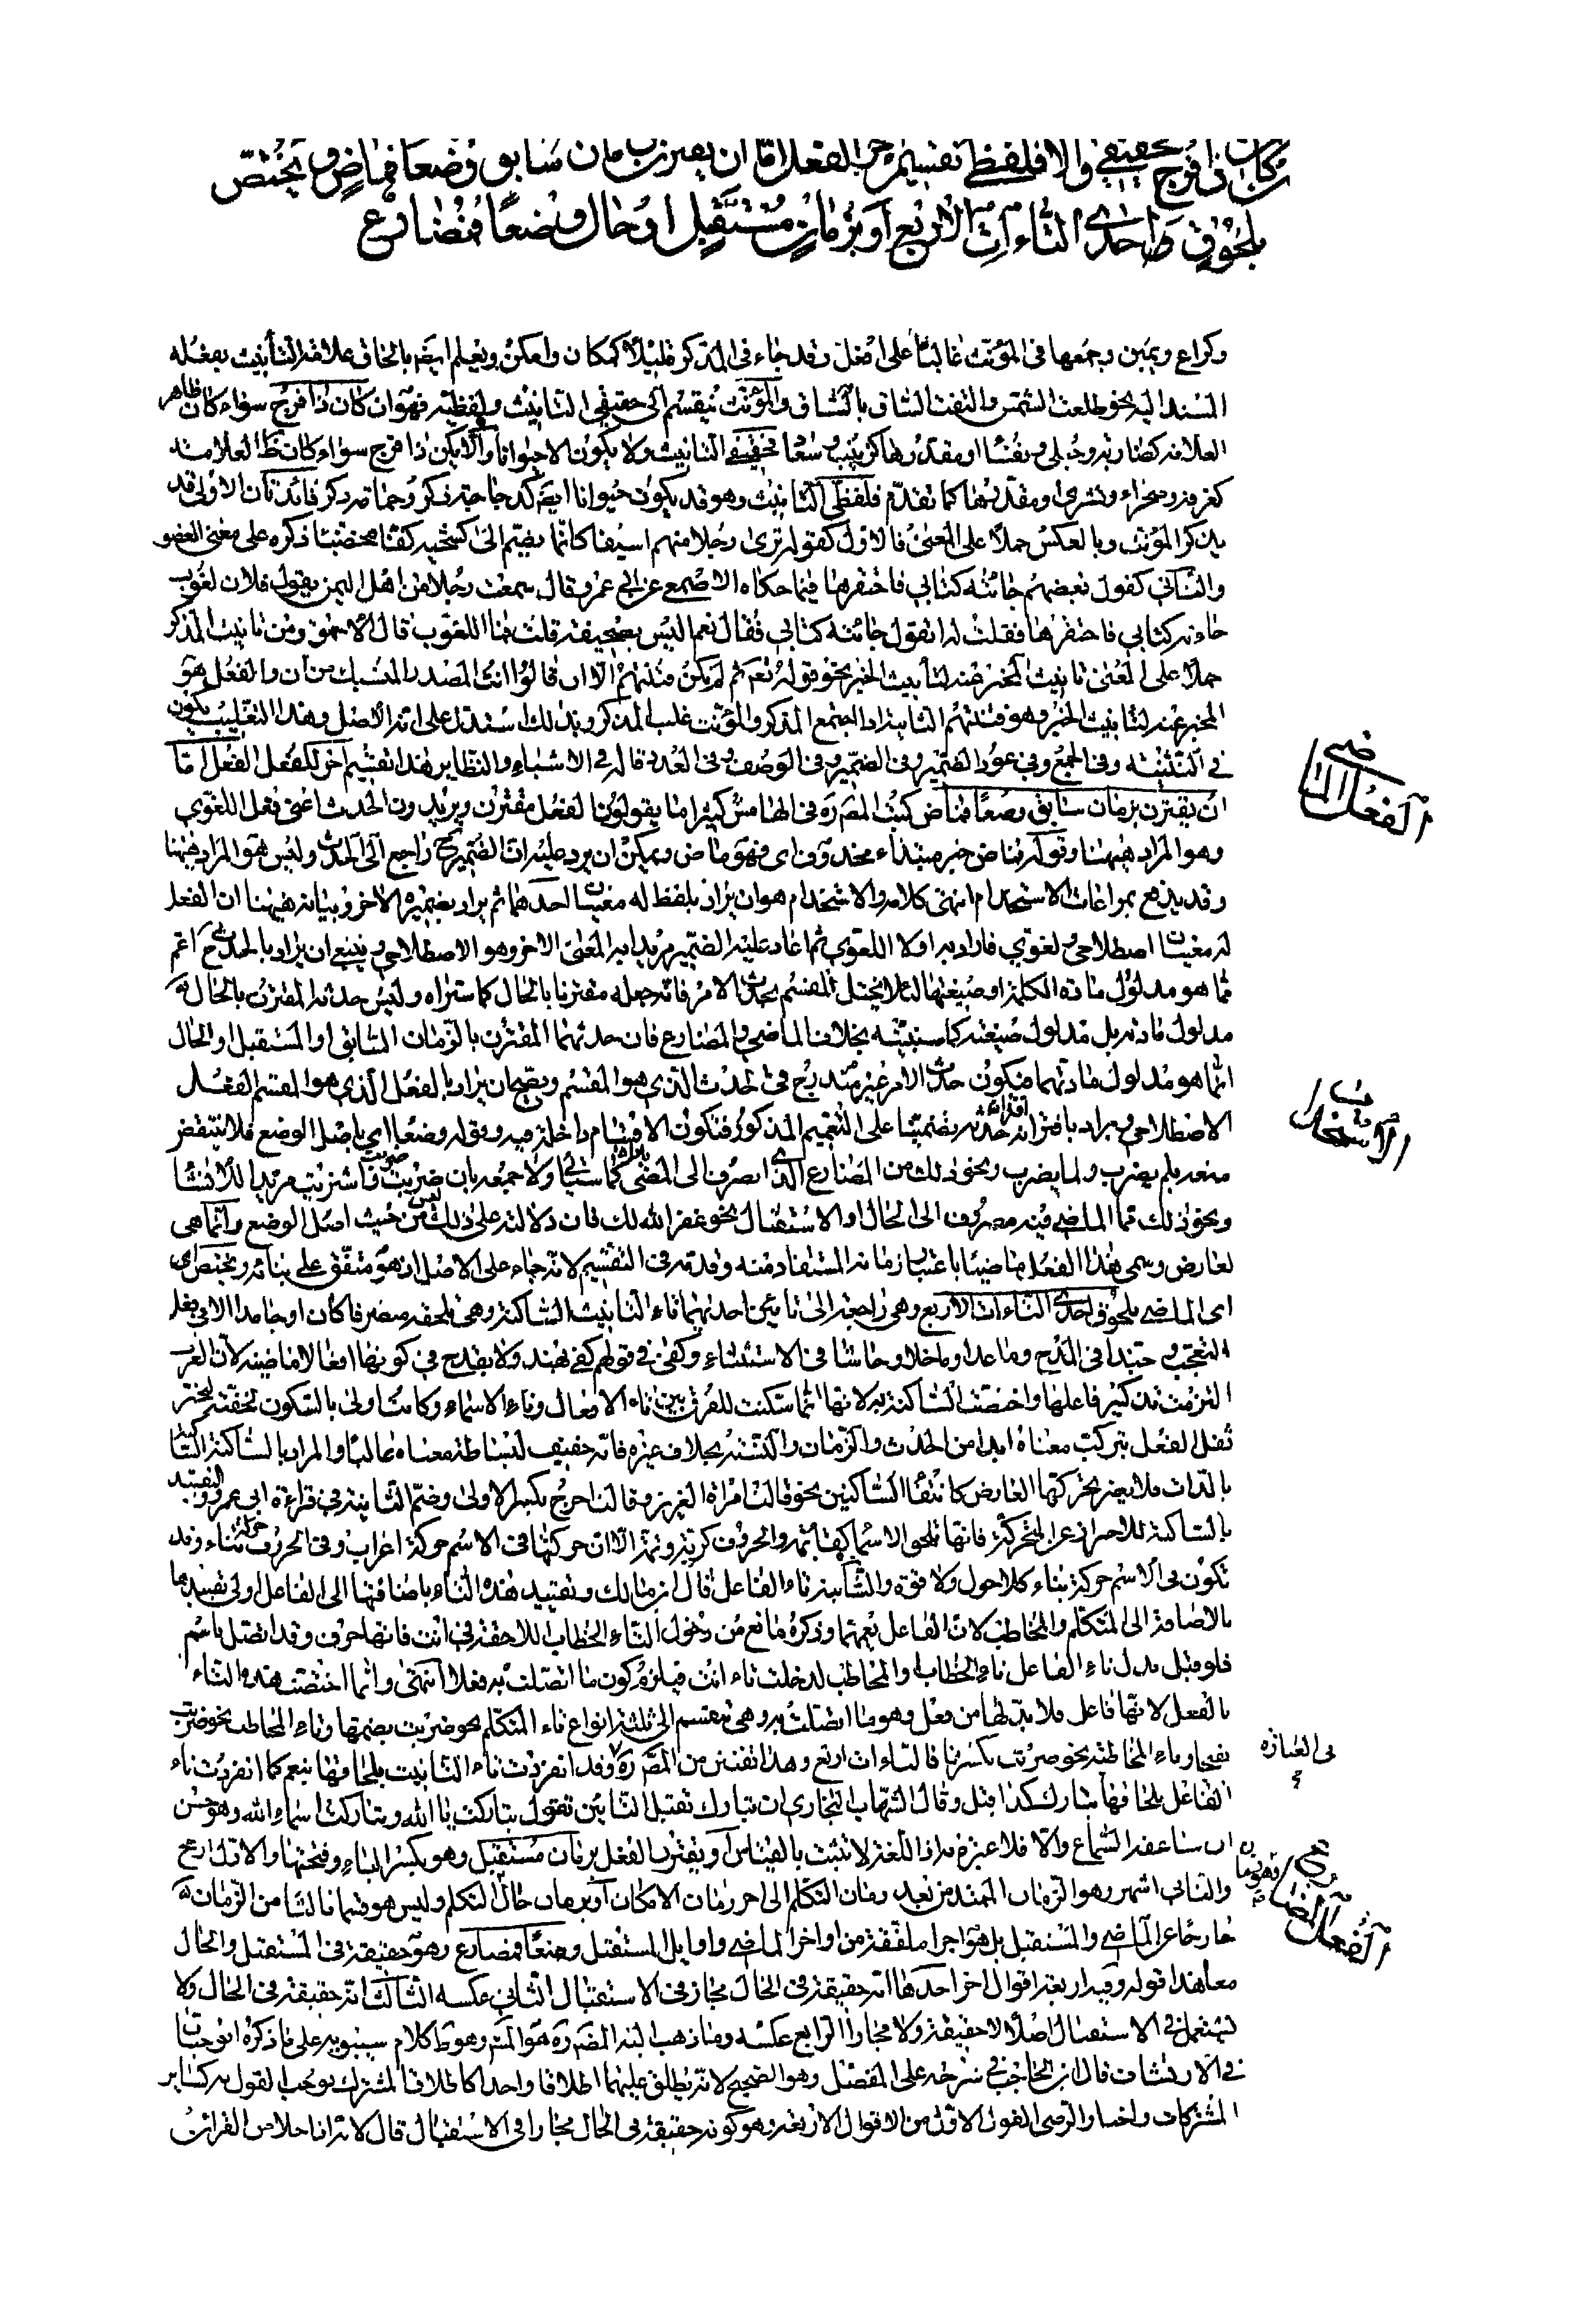 كان ذا فرج فحقيقي والا فلفظي تقسيم اخر الفعل اما ان يقترن بزمان سابق وضعا فماض ويختص
بلحوق احدى التاءات الاربع او بزمان مستقبل او حال وضعا فمضارع
وكراع ويمين وجمعها في المؤنث غالبا على افعل وقد جاء في المذكر قليلا كمكان وامكن ويعلم ايضا بالحاق علامة التأنيث بفعله
المسند اليه نحو طلعت الشمس والتفت الساق بالساق والمؤنث ينقسم الى حقيقي التأنيث ولفظيه فهو ان كان ذا فرج سواء كان ظاهر
العلامة كضاربة وحبلى ونفسا او مقدرها كزينب وسعاد فحقيقي التأنيث ولا يكون الا حيوانا والا يكن ذا فرج سواء كان ظ العلامة
كغرفة وصحراء وبشرى او مقدرها كما تقدم فلفظي التأنيث وهو قد يكون حيوانا ايضا كدجاجة ذكر وحمامة ذكر فائدتان الاولى قد
يذكر المؤنث وبالعكس حملا على المعنى فالاول كقوله ترى رجلا منهم اسيفا كانما يضم الى كشحيه كفا مخضبا ذكره على معنى العضو
والثاني كقول بعضهم جائته كتابي فاحتقرها فيما حكاه الاصمعي عن ابي عمرو قال سمعت رجلا من اهل اليمن يقول فلان لغوب
جاءته كتابي فاحتقرها فقلت له اتقول جائته كتابي فقال نعم اليس بصحيفة قلت ما اللغوب قال الاحمق ومن تانيث المذكر
حملا على المعنى تانيث المخبر عنه لتأنيث الخبر نحو قوله تعم ثم لم يكن فتنتهم الا ان قالوا انث المصدر المنسبك من ان والفعل هو
المخبر عنه لتأنيث الخبر وهو فتنتهم الثانية اذا اجتمع المذكر والمؤنث غلب المذكر وبذلك استدل على انه الاصل وهذا التغليب يكون
في التثنية وفي الجمع وفي عود الضمير وفي الوصف وفي العدد قاله في الاشباه والنظاير هذا تقسيم اخر للفعل الفعل اما
ان يقترن بزمان سابق وضعا فماض كتب المص ره في الهامش كثيرا ما يقولون الفعل مقترن ويريدون الحدث اعني فعل اللغوي
وهو المراد هيهنا وقوله فماض خبر مبتداء محذوف اي فهو ماض ويمكن ان يرد عليه ان الضمير ح راجع الى الحدث وليس هو المراد هيهنا
وقد يدفع بمراعات الاستخدام انتهى كلامه والاستخدام هو ان يراد بلفظ له معنيان احدهما ثم يراد بضميره الاخر وبيانه هيهنا ان الفعل
له معنيان اصطلاحي ولغوي فاراد به اولا اللغوي ثم اعاد عليه الضمير مريدا به المعنى الاخر وهو الاصطلاحي وينبغي ان يراد بالحدث ح اعم
مما هو مدلول مادة الكلمة او صيغتها لئلا يختل المقسم بحدث الامر فانه جعله مقترنا بالحال كما ستراه وليس حدثه المقترن بالحال
مدلول مادته بل مدلول صيغته كما سنبينه بخلاف الماضي والمضارع فان حدثهما المقترن بالزمان السابق او المستقبل او الحال
انما هو مدلول مادتهما فيكون حدث الامر غير مندرج في الحدث الذي هو المقسم ويصح ان يراد بالفعل الذي هو المقسم الفعل
الاصطلاحي ويراد باقترانه اقتران حدثه بضميمة على التعميم المذكور فتكون الاقسام داخلة فيه وقوله وضعا اي باصل الوضع فلا ينتقض
منعه بلم يضرب ولما يضرب ونحو ذلك من المضارع الذي انصرف الى المضي كما سيأتي ولا جمعه بان ضربت ضربت واشتريت مريدا للانشا
ونحو ذلك مما الماضي فيه مصروف الى الحال او الاستقبال نحو غفر الله لك فان دلالته على ذلك ليس من حيث اصل الوضع وانما هي
لعارض وسمي هذا الفعل ماضيا باعتبار زمانه المستفاد منه وقدمه في التقسيم لانه جاء على الاصل اذ هو متفق على بنائه ويختص اي
اي الماضي بلحوق احدى التاءات الاربع وهي راجعة الى تائين احديهما تاء التانيث الساكنة وهي تلحقه متصرفا كان او جامدا الا في فعل
التعجب وحبذا في المدح وما عدا وما خلا وحاشا في الاستثناء وكفى في قولهم كفى بهند ولا يقدح في كونها افعالا ماضية لان العرب
التزمت تذكير فاعلها واختصت الساكنة به لانها انما سكنت للفرق بين تاء الافعال وتاء الاسماء وكانت اولى بالسكون لخفته لتخبر
ثقل الفعل بتركب معناه ابدا من الحدث والزمان والنسبة بخلاف غيره فانه خفيف لبساطة معناه غالبا والمراد بالساكنة الساكنة
بالذات فلا يضر تحركها العارض كالتقا الساكنين نحو قالت امراة العزيز وقالت اخرج بكسر الاولى وضم الثانية في قراءة ابي عمرو والتقييد
بالساكنة للاحتراز عن المتحركة فانها تلحق الاسما كقائمة والحروف كربت وثمت الا ان حركتها في الاسم حركة اعراب وفي الحروف حركة بناء وقد
تكون في الاسم حركة بناء كلا حول ولا قوة والثانية تاء الفاعل قال ابن مالك وتقييد هذه التاء باضافتها الى الفاعل اولى من تقييدها
بالاضافة الى المتكلم والمخاطب لان الفاعل يعمهما وذكره مانع من دخول التاء الخطاب اللاحقة في انت فانها حرف وقد اتصل باسم
فلو قيل بدل تاء الفاعل تاء الخطاب والمخاطب لدخلت تاء انت فيلزم كون ما اتصلت به فعلا انتهى وانما اختصت هذه التاء
بالفعل لانها فاعل فلا بد لها من فعل وهو ما اتصلت به وهي تنقسم الى ثلثة انواع تاء المتكلم نحو ضربت بضمها وتاء المخاطب نحو ضربت
بفتحها وتاء المخاطبة نحو ضربت بكسرها فالتاءات اربع وهذا تفنن من المص ره وقد انفردت تاء التانيث بلحاقها نعم كما انفردت تاء
الفاعل بلحاقها تبارك كذا قيل وقال الشهاب البخاري ان تبارك تقبل التائين تقول تباركت يا الله وتباركت اسماء الله وهو حسن
ان ساعفه السماع والا فلا عبرة به اذ اللغة لا تثبت بالقياس او يقترن الفعل بزمان مستقبل وهو بكسر الباء وفتحها والاول ارجح
والثاني اشهر وهو الزمان الممتد من بعد زمان التكلم الى اخر زمان الامكان او بزمان حال التكلم وليس هو قسما ثالثا من الزمان
خارجا عن الماضي والمستقبل بل هو اجزا ملفقة من اواخر الماضي واوايل المستقبل وضعا فمضارع وهو حقيقة في المستقبل والحال
معا هذا قوله وفيه اربعة اقوال اخر احدها انه حقيقة في الحال مجاز في الاستقبال الثاني عكسه الثالث انه حقيقة في الحال ولا
يستعمل في الاستقبال اصلا لا حقيقة ولا مجازا الرابع عكسه وما ذهب اليه المص ره هو المش وهو ظ كلام سيبويه على ما ذكره ابو حيان
في الارتشاف قال ابن الحاجب في شرحه على المفصل وهو الصحيح لانه يطلق عليهما اطلاقا واحدا كاطلاق المشترك فوجب القول به كسائر
المشتركات واختار الرضي القول الاول من الاقوال الاربعة وهو كونه حقيقة في الحال مجازا في الاستقبال قال لانه اذا خلا من القرائن
الفعل الماضي
الاستخدام
في العبارة
الفعل المضارع